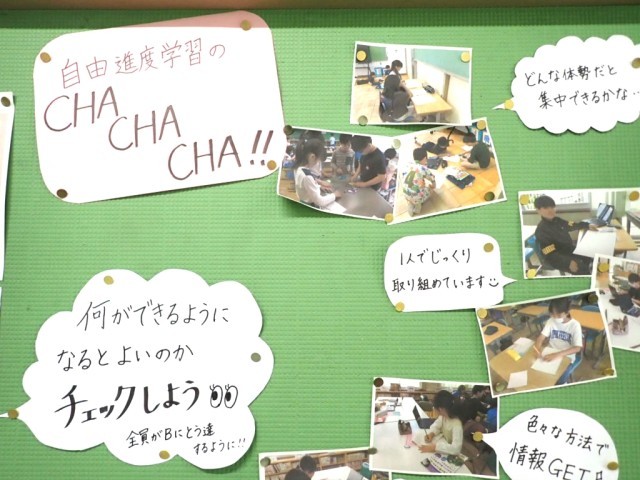 自由進度学習の
CHA
CHA
CHA!!
どんな体勢だと
集中できるかな…
1人でじっくり
取り組めています
何ができるように
なるとよいのか
チェックしよう
全員がBにとう達
するように!!
色々な方法で
情報GET!!